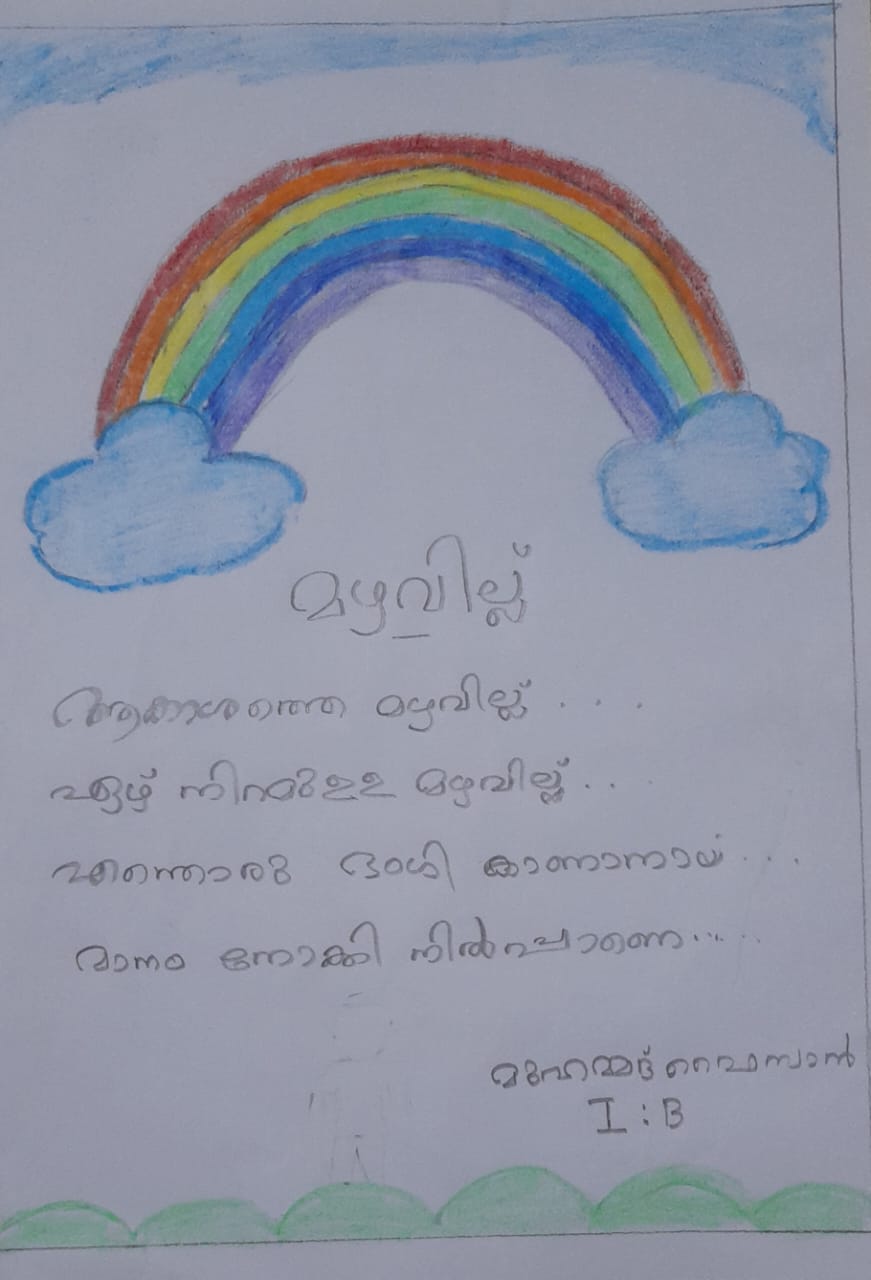 മഴവില്ല്
ആകാശത്തെ മഴവില്ല് . . .
ഏഴ് നിറമുള്ള മഴവില്ല് . . .
എന്തൊരു ഭംഗി കാണാനായ് . . .
മാനം നോക്കി നിൽപ്പാണെ . . . . .
മുഹമ്മദ് ഫൈസാൻ
I : B